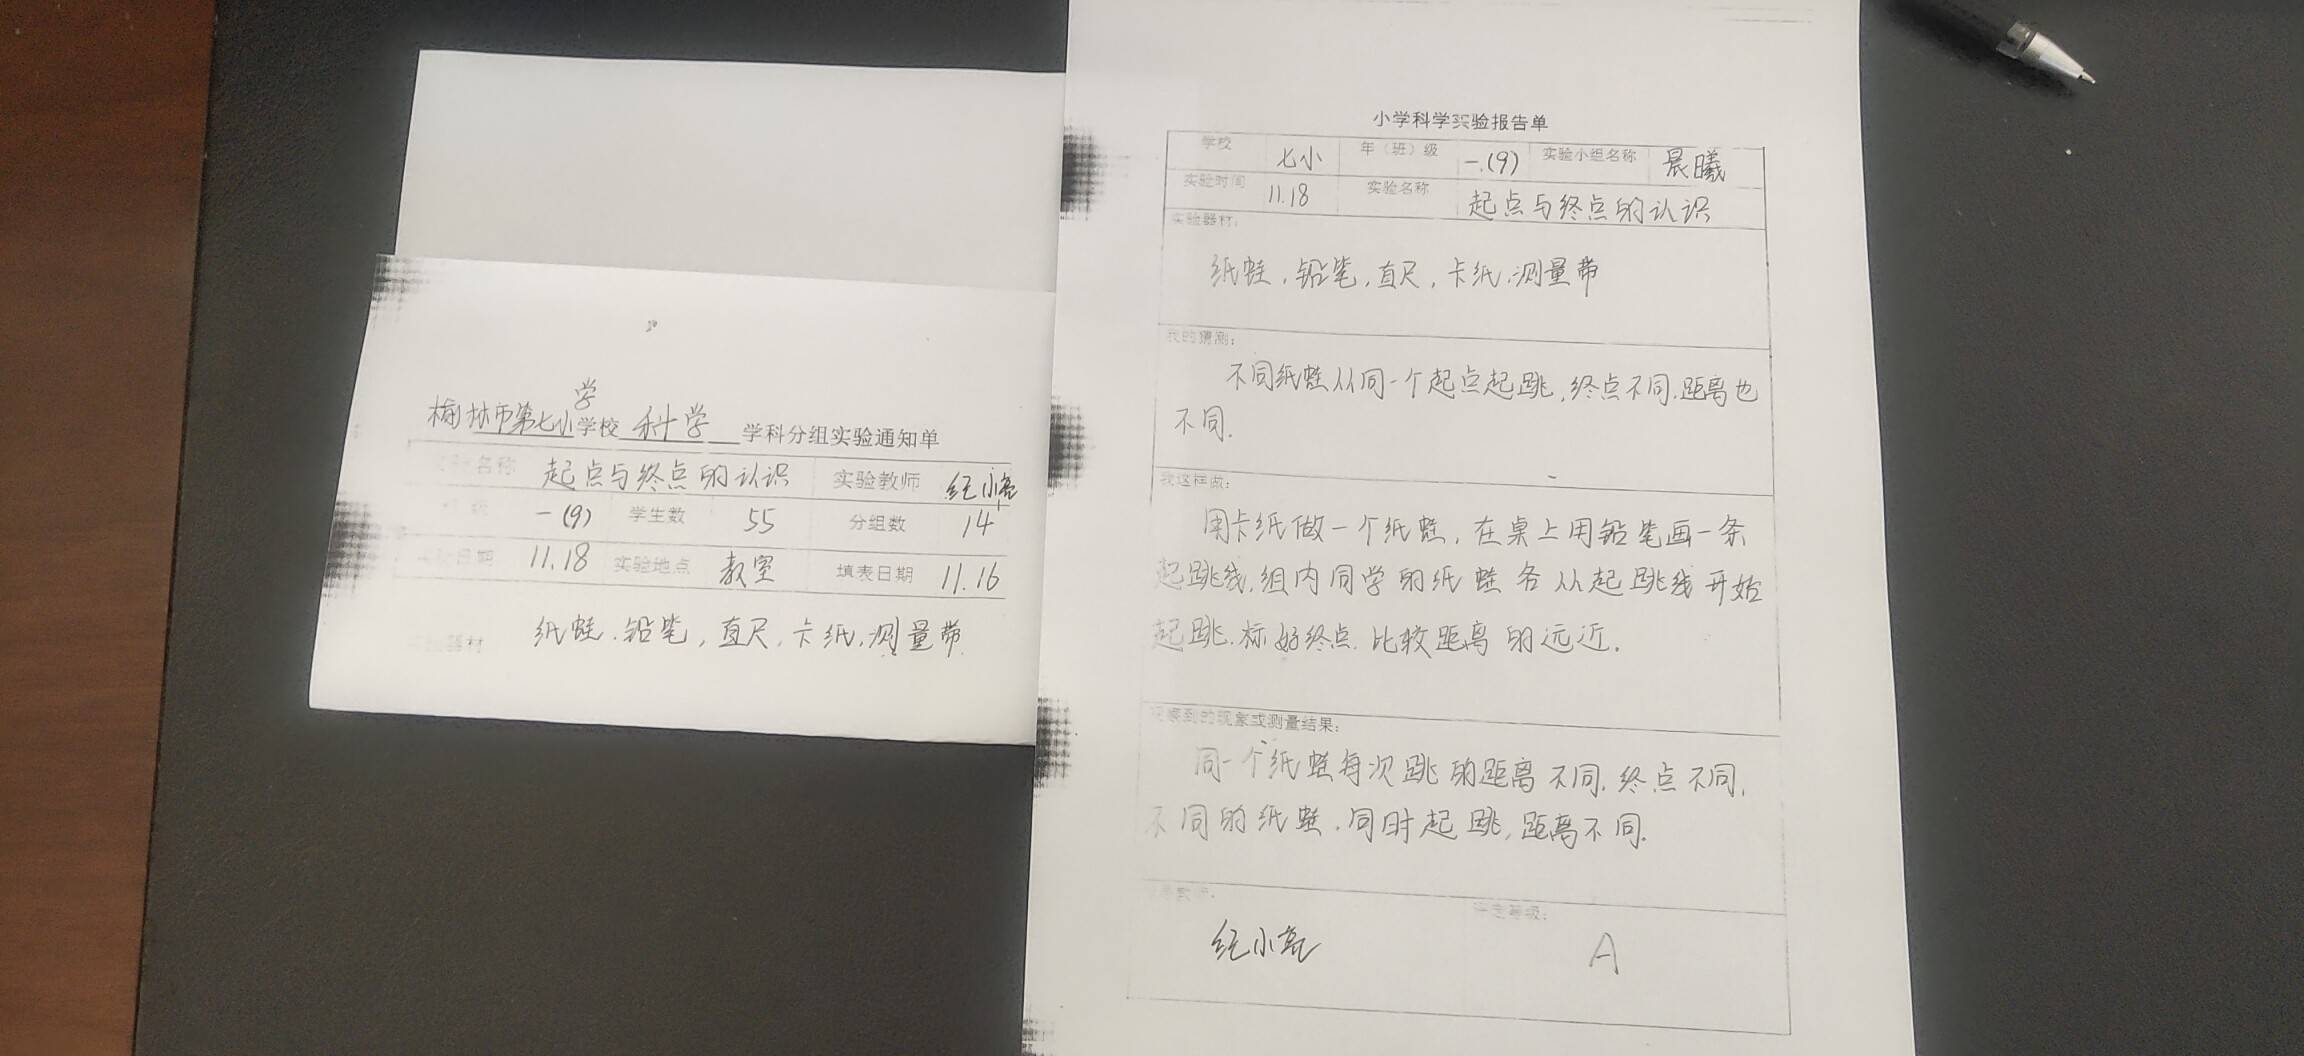 学
榆林市第七小学校 科学 学科分组实验通知单
实验名称 起点与终点的认识 实验教师 纪小亮
班级 一(9) 学生数 55 分组数 14
实验日期 11.18 实验地点 教室 填表日期 11.16
实验器材 纸蛙.铅笔,直尺,卡纸.测量带
小学科学实验报告单
学校 七小 年(班)级 一.(9) 实验小组名称 晨曦
实验时间 11.18 实验名称 起点与终点的认识
实验器材:
纸蛙.铅笔,直尺,卡纸.测量带
我的猜测:
不同纸蛙从同一个起点起跳,终点不同.距离也
不同.
我这样做:
用卡纸做一个纸蛙,在桌上用铅笔画一条
起跳线,组内同学的纸蛙各从起跳线开始
起跳.标好终点.比较距离的远近.
观察到的现象或测量结果:
同一个纸蛙每次跳的距离不同.终点不同,
不同的纸蛙.同时起跳,距离不同.
评定等级:
纪小亮 A